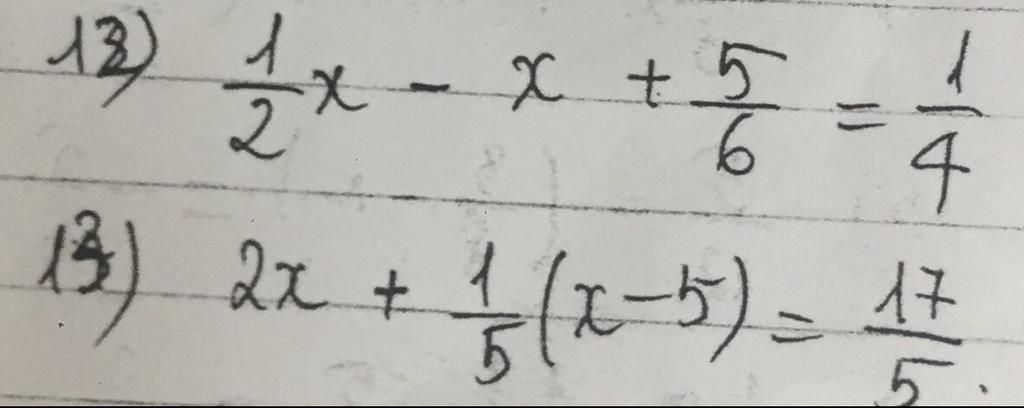 12) 1/2 x - x + 5/6 = 1/4
13) 2x + 1/5 (x - 5) = 17/5.